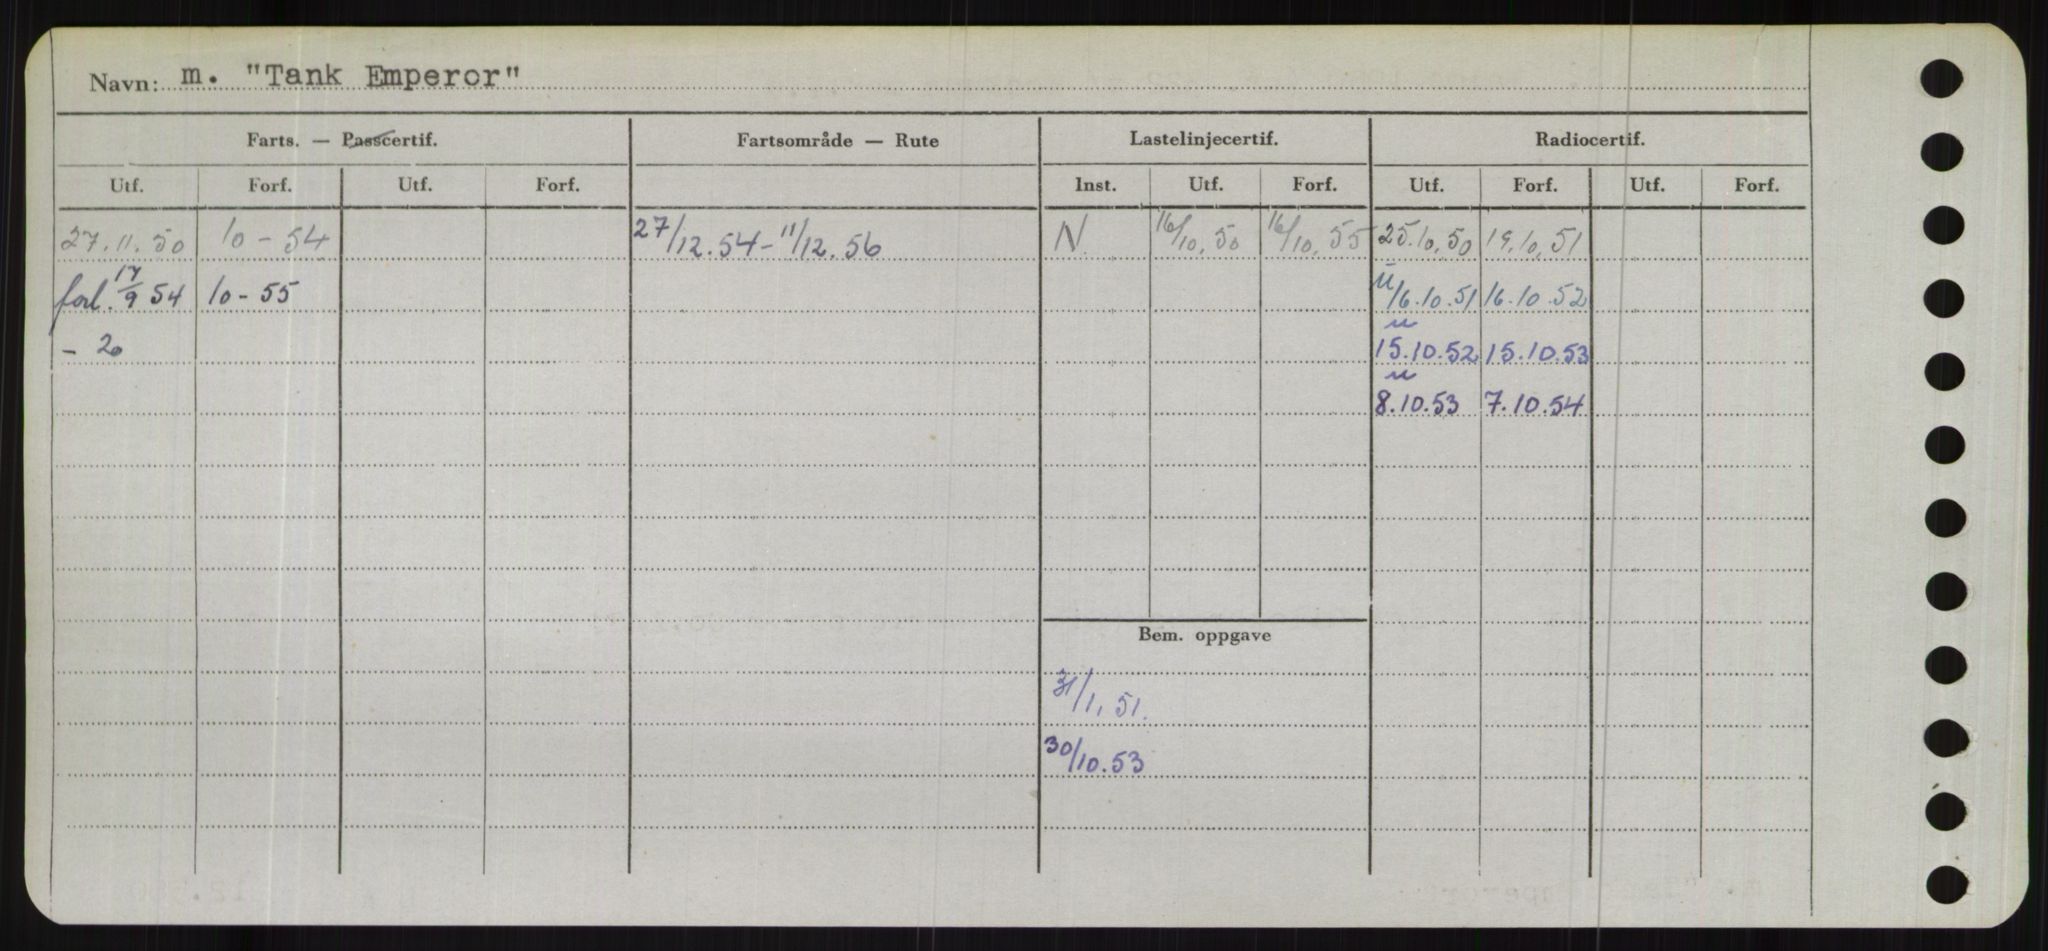 Navn: m. "Tank Emperor"
Farts. — Passcertif. Fartsområde — Rute Lastelinjecertif. Radiocertif.
Utf. Forf. Utf. Forf. Inst. Utf. Forf. Utf. Forf. Utf. Forf.
27.11.50 10-54 27/12.54-11/12.56 N 16/10.50 16/10.55 25.10.50 19.10.51
forl. 17/9 54 10-55 u 16.10.51 16.10.52
- 20 u 15.10.52 15.10.53
u 8.10.53 7.10.54
Bem. oppgave
31/1.51.
30/10.53